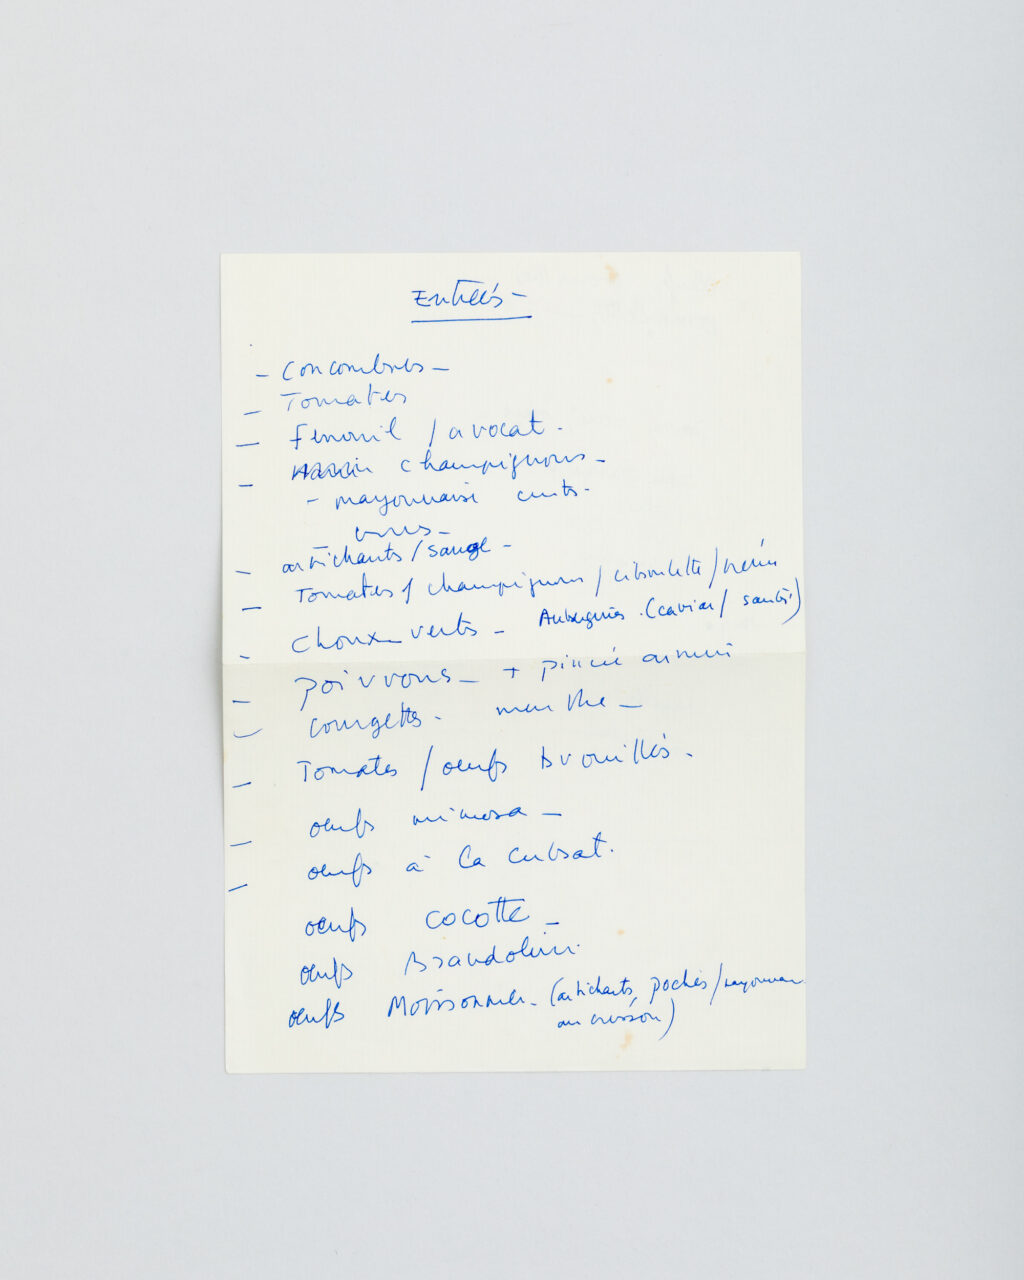 Entrées -
- Concombres -
- Tomates
- fenouil / avocat -
- champignons -
- mayonnaise cuits -
crus -
- artichauts / sauge -
- Tomates / champignons / ciboulette /
- Choux verts - Aubergines (caviar / sautés)
- poivrons - + pincée
- courgettes - menthe -
- Tomates / oeufs brouillés -
- oeufs mimosa -
- oeufs à la
oeufs cocotte -
oeufs Brandolini
oeufs Moissonnier - (artichauts, pochés / mayonnaise
au cresson)